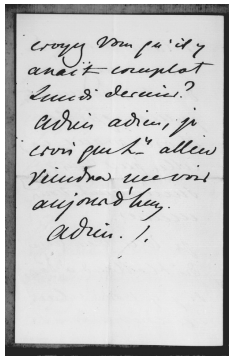 croyez vous qu'il y
avait complot
Lundi dernier?
Adieu adieu, je
crois que Lᵈ allen
viendra me voir
aujourd'huy.
Adieu. /.